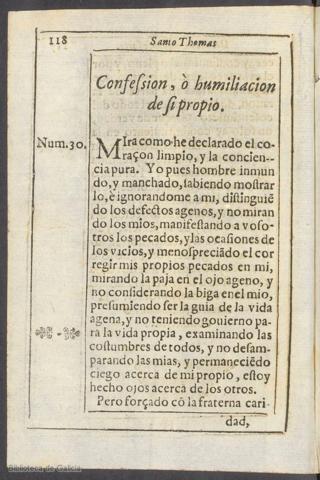 118
Santo Thomas
Confession, ò humiliacion
de si propio.
Num.30.
MIra como he declarado el co-
raçon limpio, y la concien-
cia pura. Yo pues hombre inmun
do, y manchado, sabiendo mostrar
lo, è ignorandome a mi, distinguiẽ
do los defectos agenos, y no miran
do los mios, manifestando a voso-
tros los pecados, y las ocasiones de
los vicios, y menospreciãdo el cor
regir mis propios pecados en mi,
mirando la paja en el ojo ageno, y
no considerando la biga en el mio,
presumiendo ser la guia de la vida
agena, y no teniendo gouierno pa-
ra la vida propia, examinando las
costumbres de todos, y no desam-
parando las mias, y permaneciẽdo
ciego acerca de mi propio, estoy
hecho ojos acerca de los otros.
Pero forçado cõ la fraterna cari-
dad,
Biblioteca de Galicia